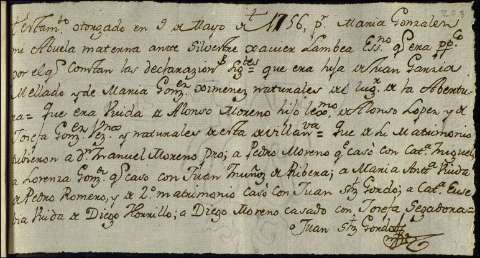 Testam.to otorgado en 9 de Mayo de 1756, p.r Maria Gonzalez
me Abuela materna ante Silvestre Xavier Lambea Ess.no q.e era pp.co
por el q.e Constan las declarazion.s sig.tes que era hija de Juan Garzia
Mellado y de Maria Gom.z Ximenez naturales del lug.r de la Abentu
ra= que era Viuda de Alonso Moreno hijo lex.mo de Alonso Lopez, y de
Josefa Gom.z y naturales de esta de villan.va= que de d.ho Matrimonio
hubieron a D.n Manuel Moreno Pro; a Pedro Moreno q.e casó con Cat.a Miguel,
a Lorenza Gom.z q.e casó con Juan Muñoz de Ribera; a Maria Ant.a Viuda
de Pedro Romero, y de 2.o matrimonio casó con Juan Sz Gordo; a Cat.a Euse
bia Viuda de Diego Horrillo; a Diego Moreno casado con Josefa Segadona=
a Juan Sz Gordo